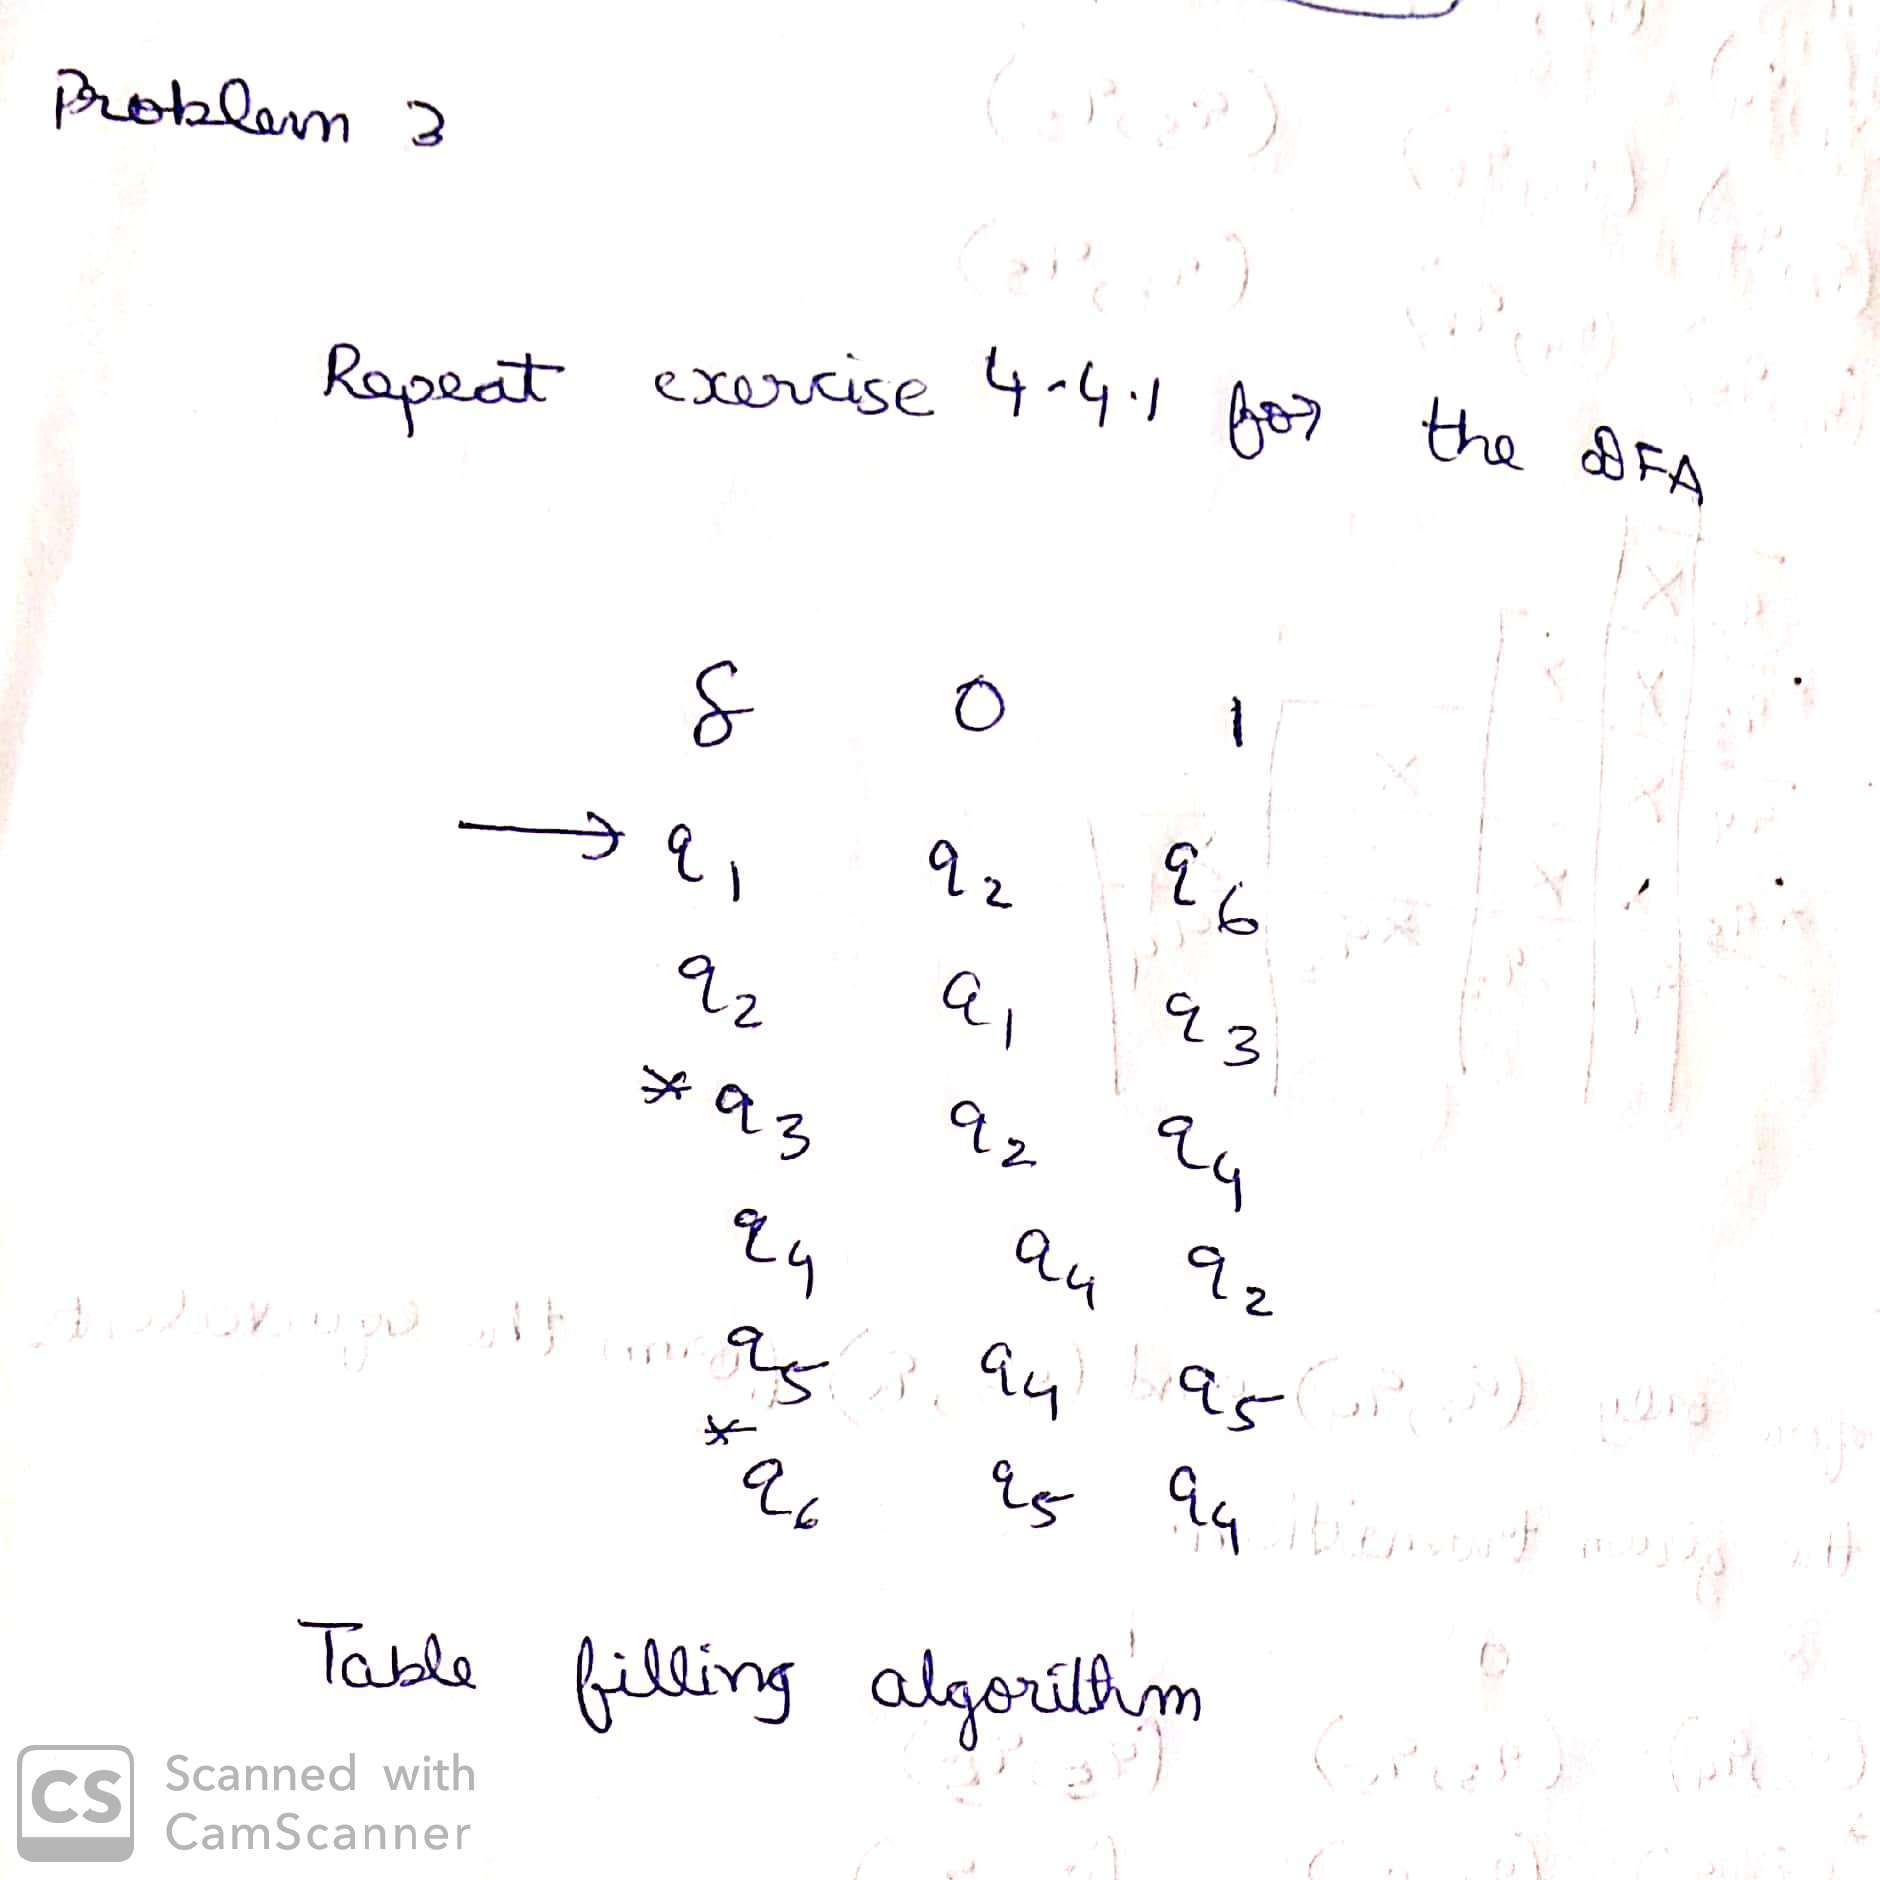 Problem 3
Repeat exercise 4.4.1 for the DFA
δ 0 1
→ q1 q2 q6
q2 q1 q3
* q3 q2 q4
q4 q4 q2
q5 q4 q5
* q6 q5 q4
Table filling algorithm
CS Scanned with
CamScanner